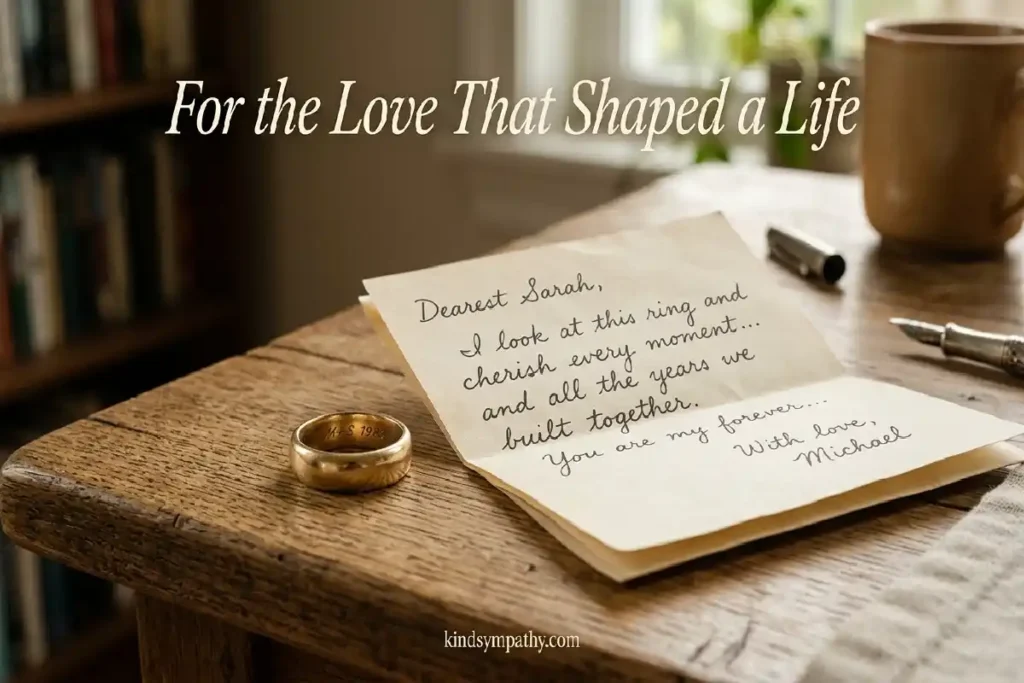 For the Love That Shaped a Life
Dearest Sarah,
I look at this ring and
cherish every moment...
and all the years we
built together.
You are my forever...
With love,
Michael
M+S
kindsympathy.com